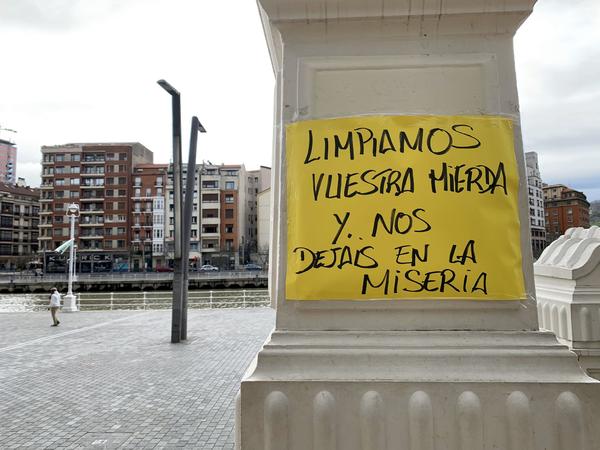 LIMPIAMOS
VUESTRA MIERDA
Y. NOS
DEJAIS EN LA
MISERIA